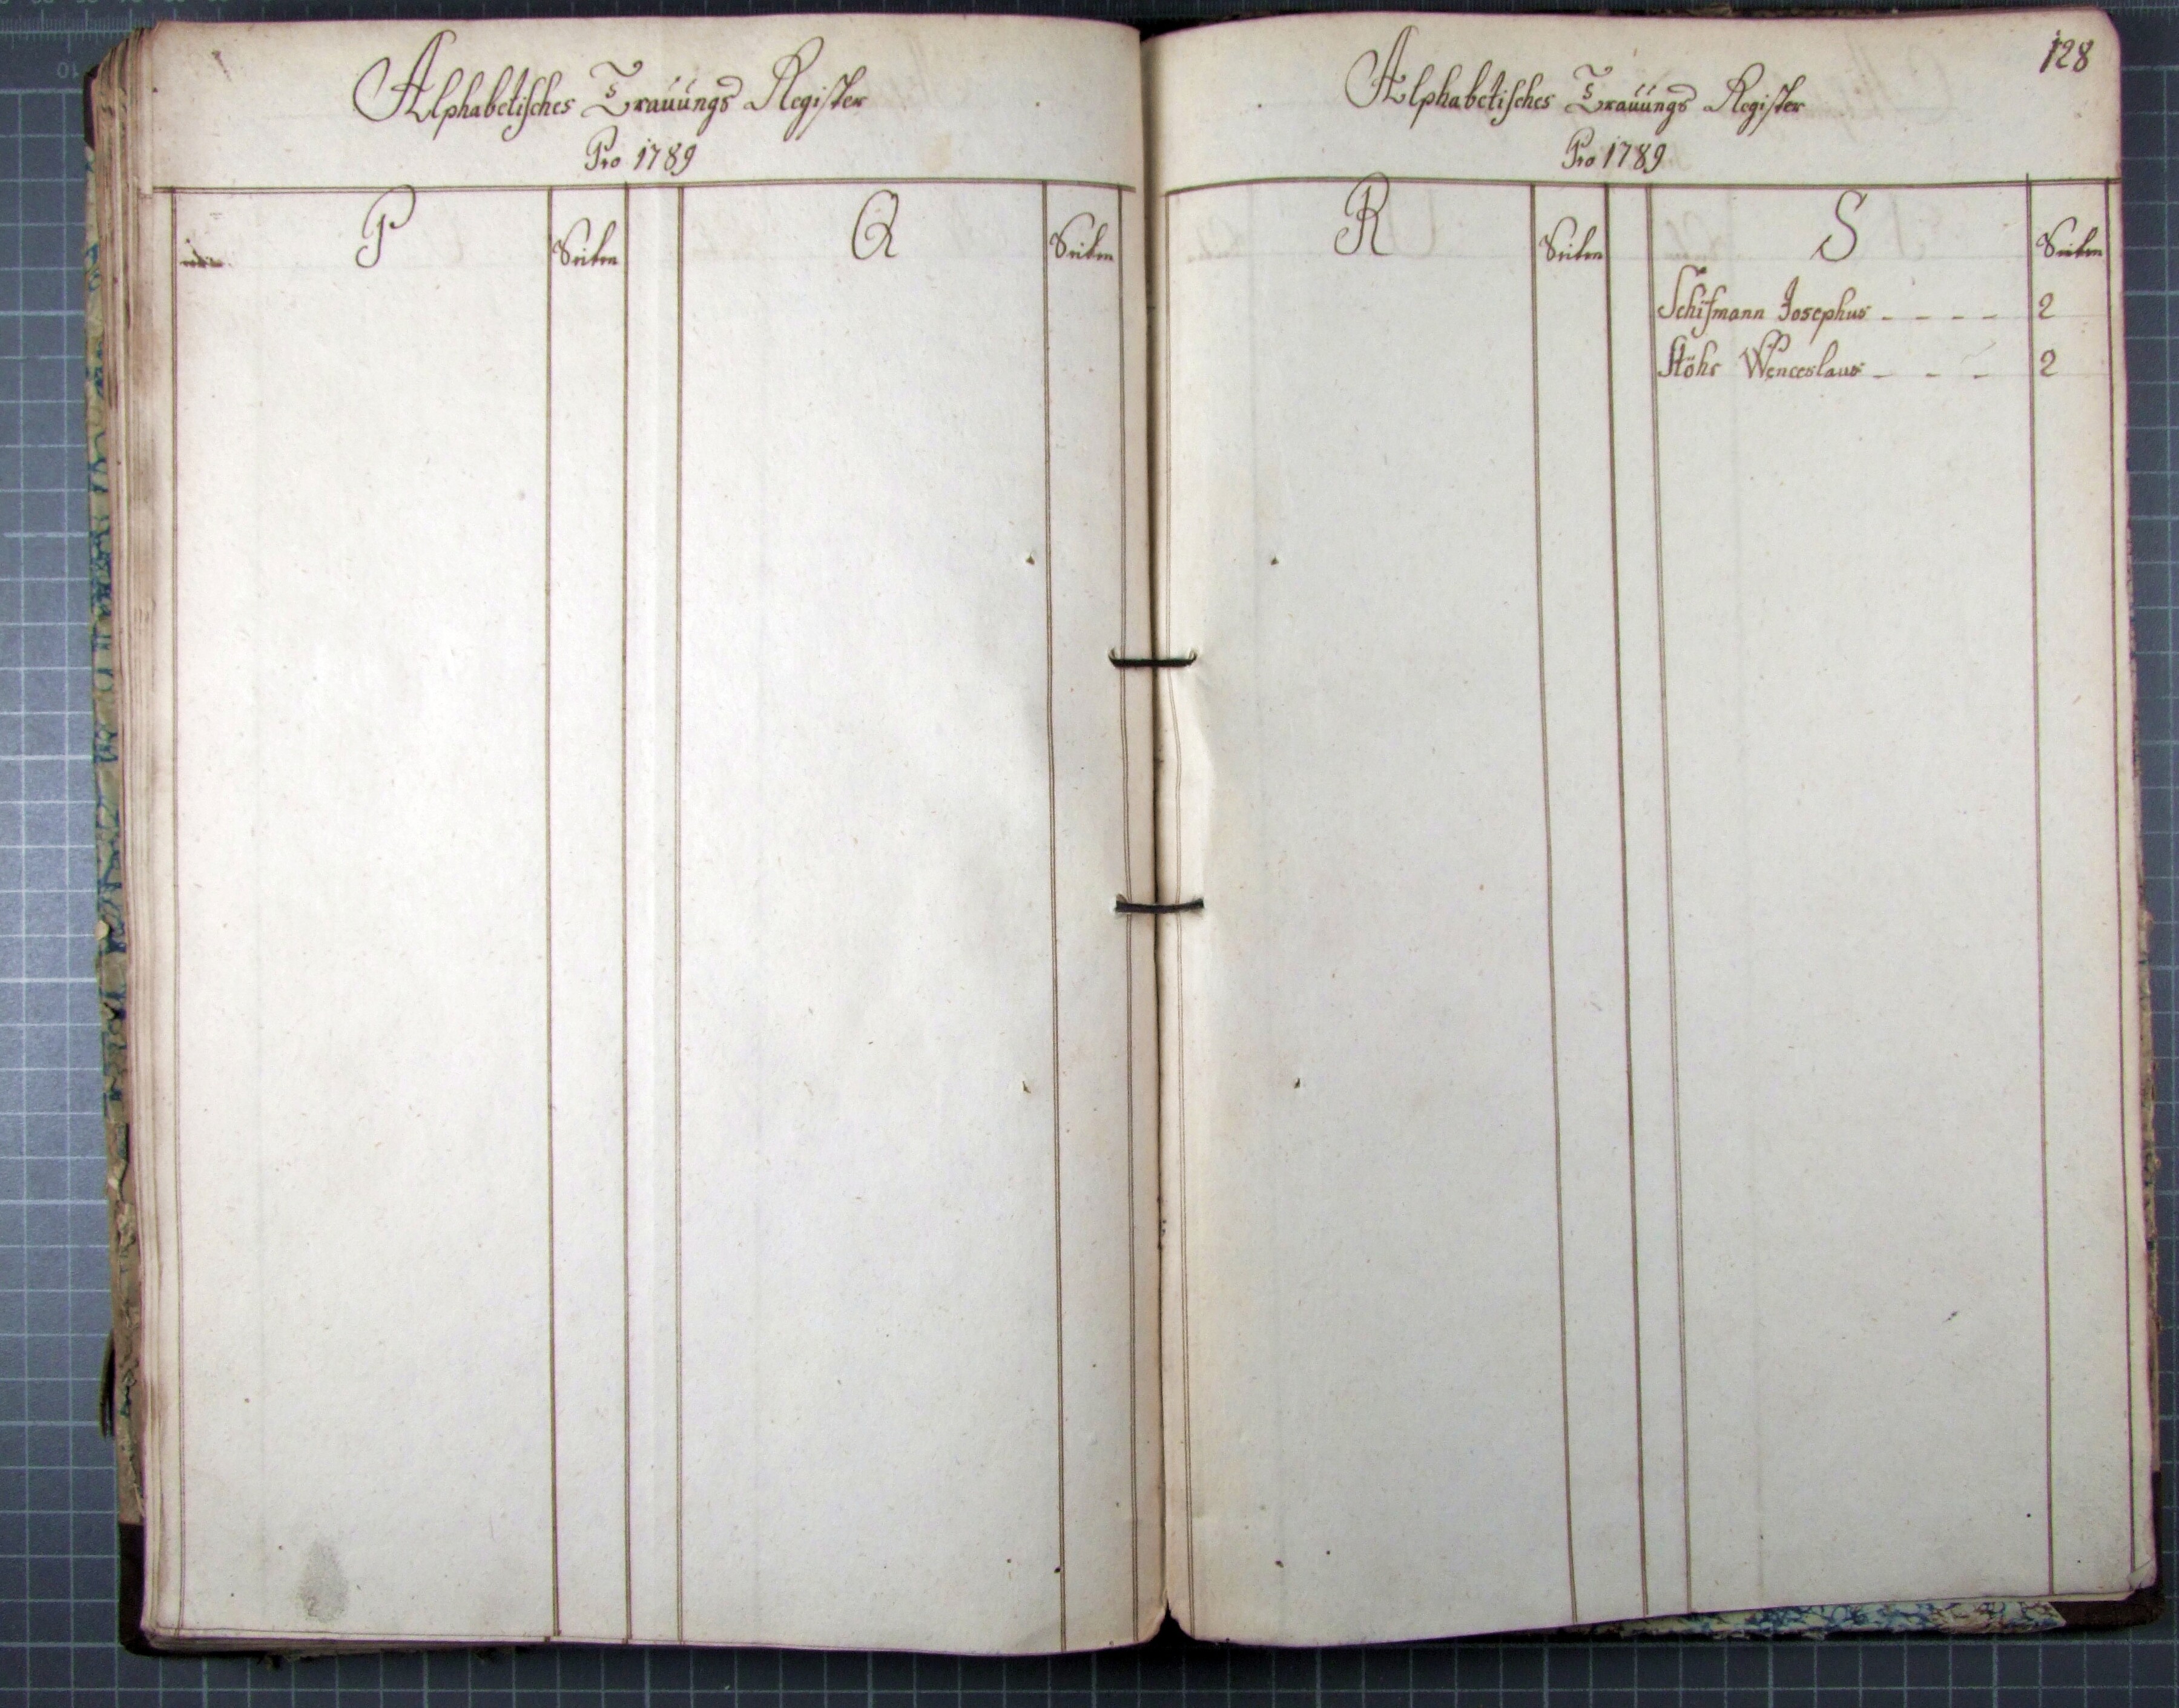 Alphabetisches Trauungs Register
Pro 1789
P Seiten Q Seiten
128
Alphabetisches Trauungs Register
Pro 1789
R Seiten S Seiten
Schifmann Josephus - - - - 2
Stöhr Wenceslaus - - - 2